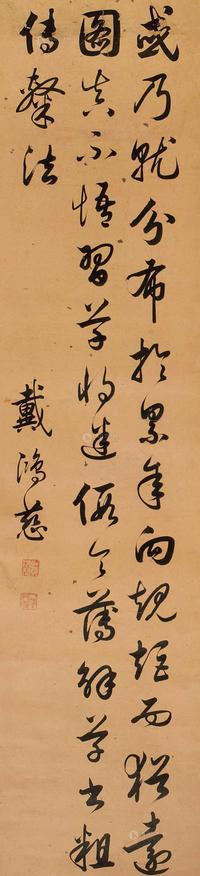 或乃就分布於累年向規矩而猶遠
圖真不悟習草將迷假令薄解草書粗
傳隸法
戴鴻慈